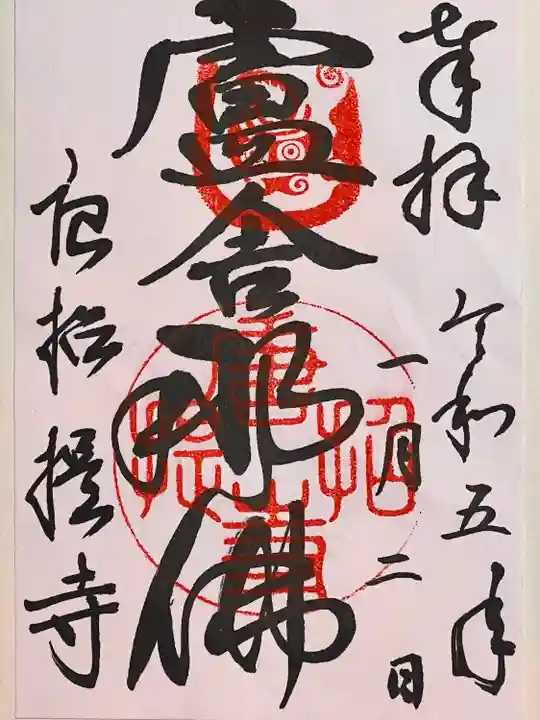 奉拝
令和五年
一月二日
盧舎那佛
唐招提寺